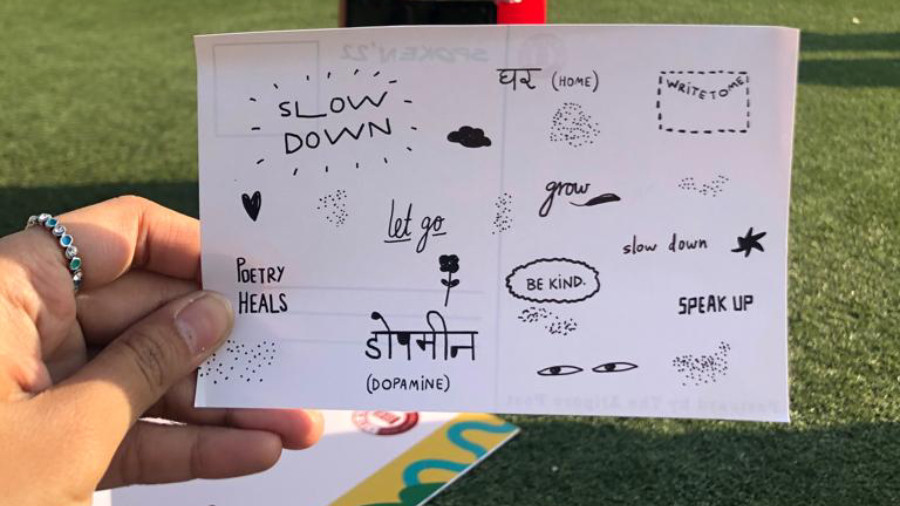 SPOKEN'22
SLOW
DOWN
घर (HOME)
WRITE TO ME
let go
grow
slow down
POETRY
HEALS
BE KIND.
SPEAK UP
डोपमीन
(DOPAMINE)